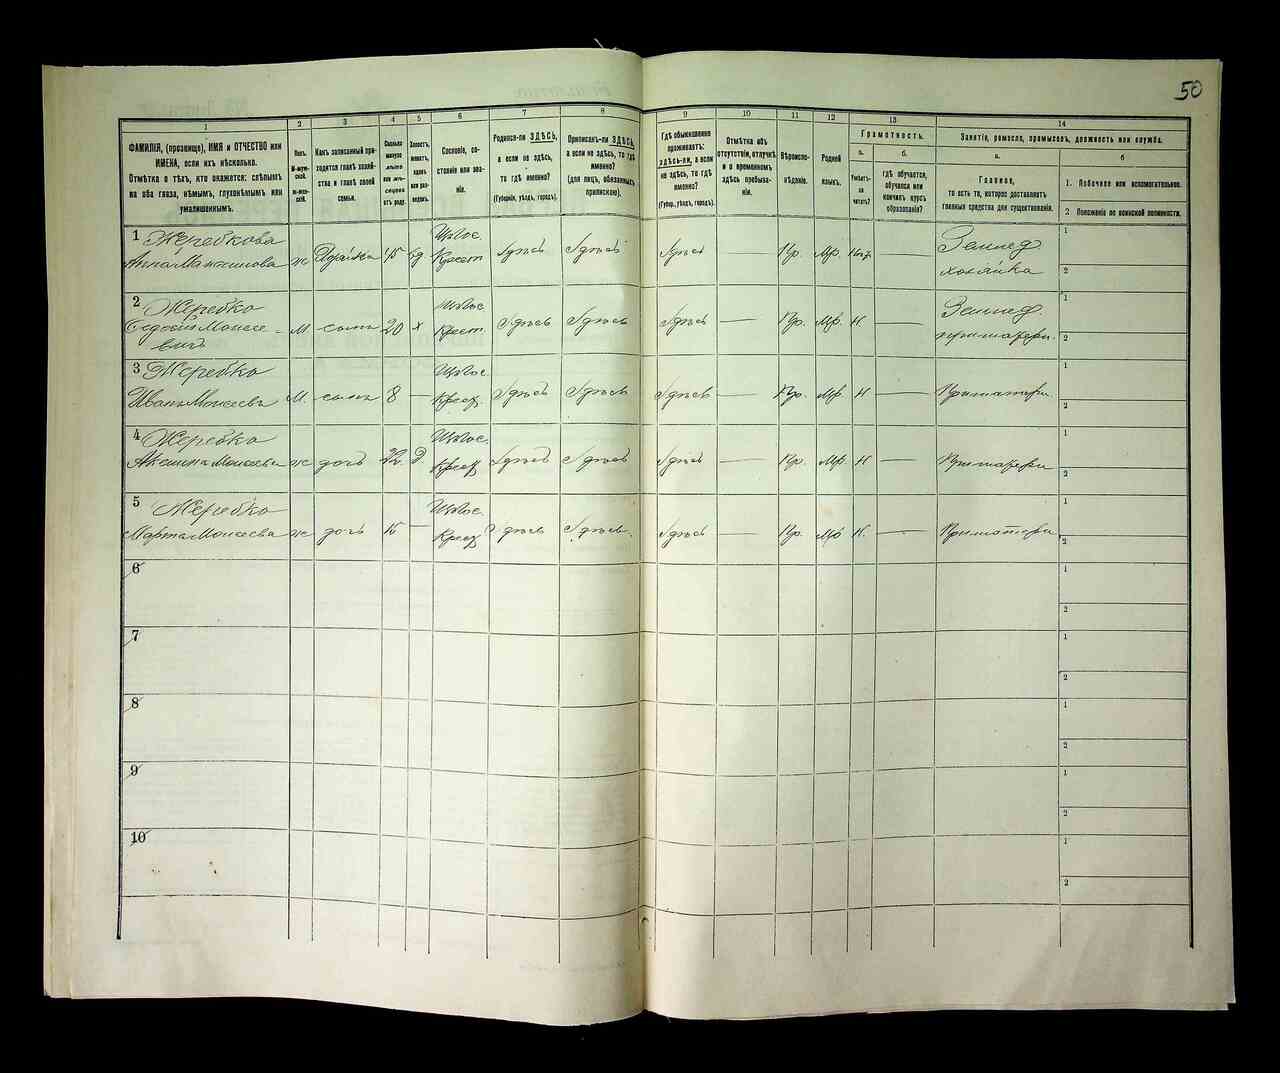 50
1
2
3
4
5
6
7
8
9
10
11
12
13
14
ФАМИЛІЯ, (прозвище), ИМЯ и ОТЧЕСТВО или
ИМЕНА, если ихъ нѣсколько.
Отмѣтка о тѣхъ, кто окажется: слѣпымъ
на оба глаза, нѣмымъ, глухонѣмымъ или
умалишеннымъ.
Полъ.
М-муж-
ской.
Ж-жен-
скій.
Какъ записанный при-
ходится главѣ хозяй-
ства и главѣ своей
семьи.
Сколько
минуло
лѣтъ
или мѣ-
сяцевъ
отъ роду.
Холостъ,
женатъ,
вдовъ
или раз-
веденъ.
Сословіе, со-
стояніе или зва-
ніе.
Родился-ли ЗДѢСЬ,
а если не здѣсь,
то гдѣ именно?
(Губернія, уѣздъ, городъ).
Приписанъ-ли ЗДѢСЬ,
а если не здѣсь, то гдѣ
именно?
(для лицъ, обязанныхъ
припискою).
Гдѣ обыкновенно
проживаетъ:
здѣсь-ли, а если
не здѣсь, то гдѣ
именно?
(Губер., уѣздъ, городъ).
Отмѣтка объ
отсутствіи, отлучкѣ
и о временномъ
здѣсь пребыва-
ніи.
Вѣроиспо-
вѣданіе.
Родной
языкъ.
Грамотность.
а.
б.
Умѣетъ-
ли
читать?
гдѣ обучается,
обучался или
кончилъ курсъ
образованія?
Занятіе, ремесло, промыселъ, должность или служба.
а.
б
Главное,
то есть то, которое доставляетъ
главныя средства для существованія.
1. Побочное или вспомогательное.
2 Положеніе по воинской повинности.
1 Жеребкова
Анна Максимова ж 45 вд Крест здѣсь здѣсь здѣсь — Пр. Мр. — Землед.
хозяйка
1
2
2 Жеребко
Моисее-
вичъ М сынъ 20 х Крест. здѣсь здѣсь здѣсь — Пр. Мр. Н — Землед.
при матери.
1
2
3 Жеребко
Иванъ Моисеевъ М. сынъ 8 — Крест. здѣсь здѣсь здѣсь — Пр. Мр. Н — При матери
1
2
4 Жеребко
Акелина Моисеева ж дочь 22 Д Крест здѣсь здѣсь здѣсь — Пр. Мр. Н — При матери
1
2
5 Жеребко
Марта Моисеева ж дочь 15 — Крест здѣсь здѣсь. здѣсь — Пр. Мр Н. — При матери
1
2
6
1
2
7
1
2
8
1
2
9
1
2
10
1
2